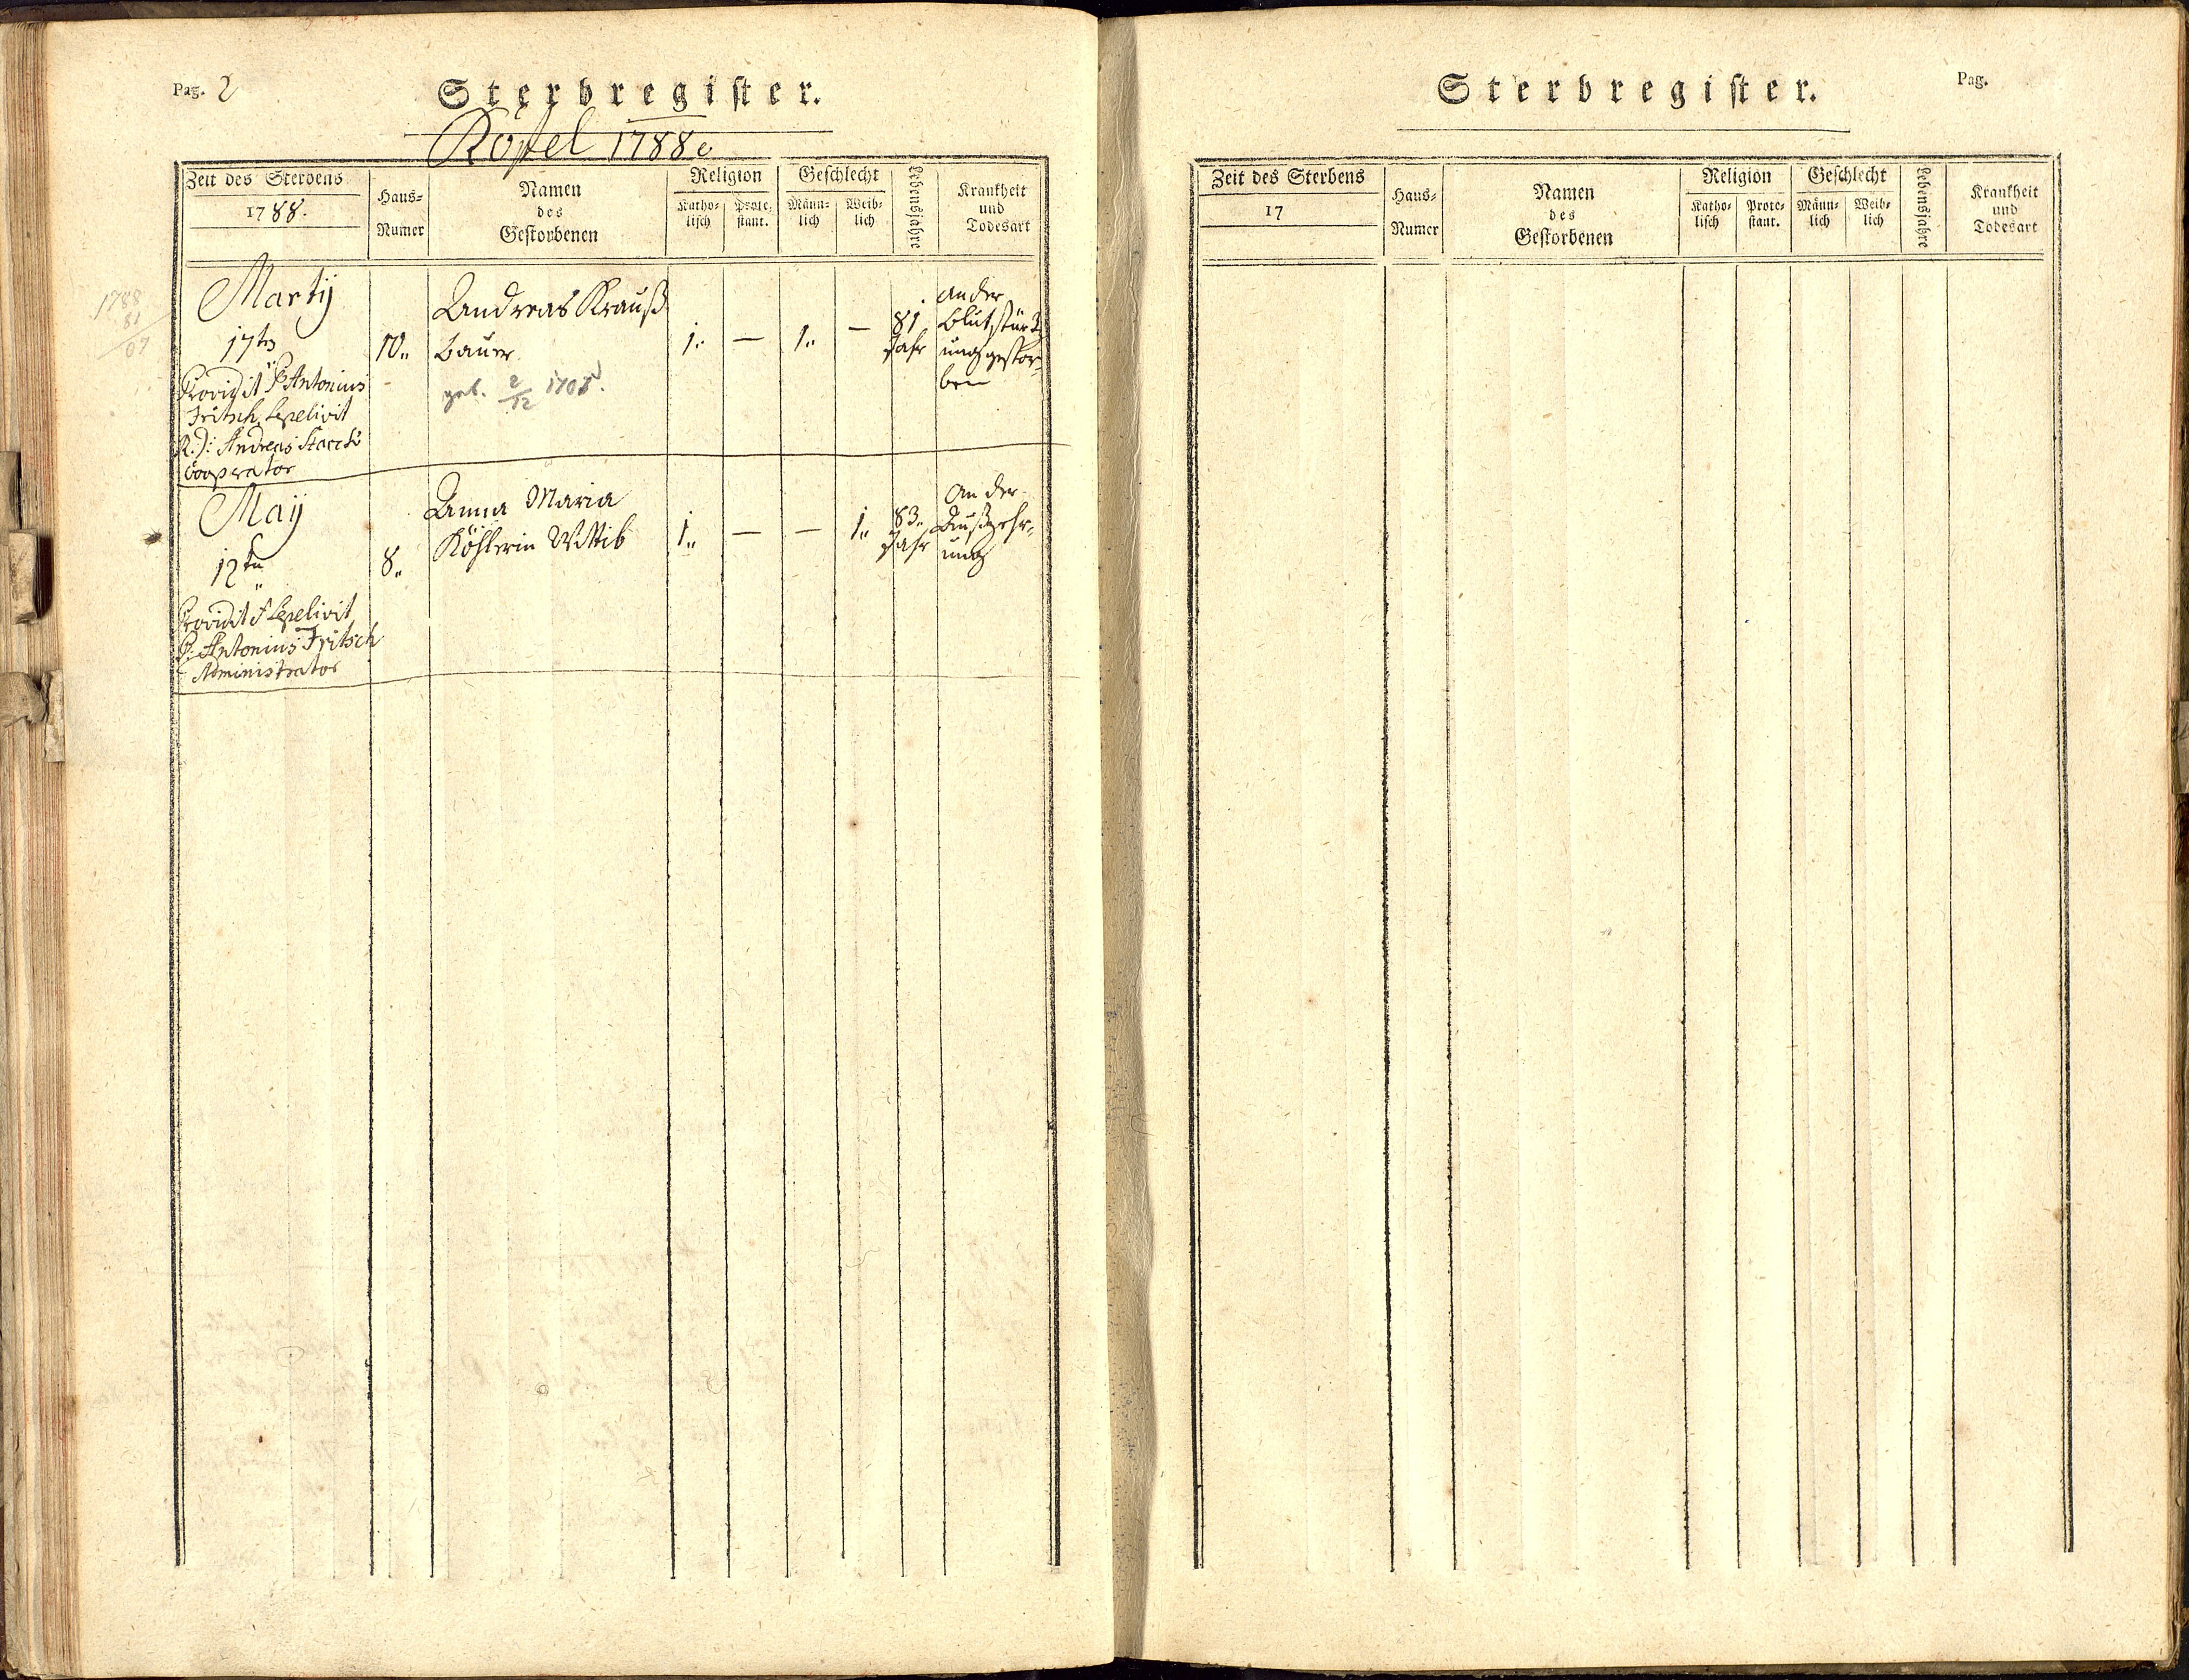 Pag. 2
Sterbregister.
Koſtel 1788
Zeit des Sterbens
1788.
Haus-
Numer
Namen
des
Gestorbenen
Religion
Katho-
lisch
Prote-
stant.
Geschlecht
Männ-
lich
Weib-
lich
Lebensjahre
Krankheit
und
Todesart
1788
81
07
Martÿ
17ten
Providit P. Antonius
Fritsch, Sepelivit
R: D: Andreas
Cooperator
10..
Andreas Krauß
bauer
geb. 2/12
1..
—
1..
—
81
Jahr
an der
blutstürz
ung gestor-
ben
Maÿ
12ten
Providit & Sepelivit
P. Antonius Fritsch
Administrator
8..
Anna Maria
Köhlerin Wittib
1..
—
—
1..
83..
Jahr
An der
Außzehr-
ung
Sterbregister.
Pag.
Zeit des Sterbens
17
Haus-
Numer
Namen
des
Gestorbenen
Religion
Katho-
lisch
Prote-
stant.
Geschlecht
Männ-
lich
Weib-
lich
Lebensjahre
Krankheit
und
Todesart